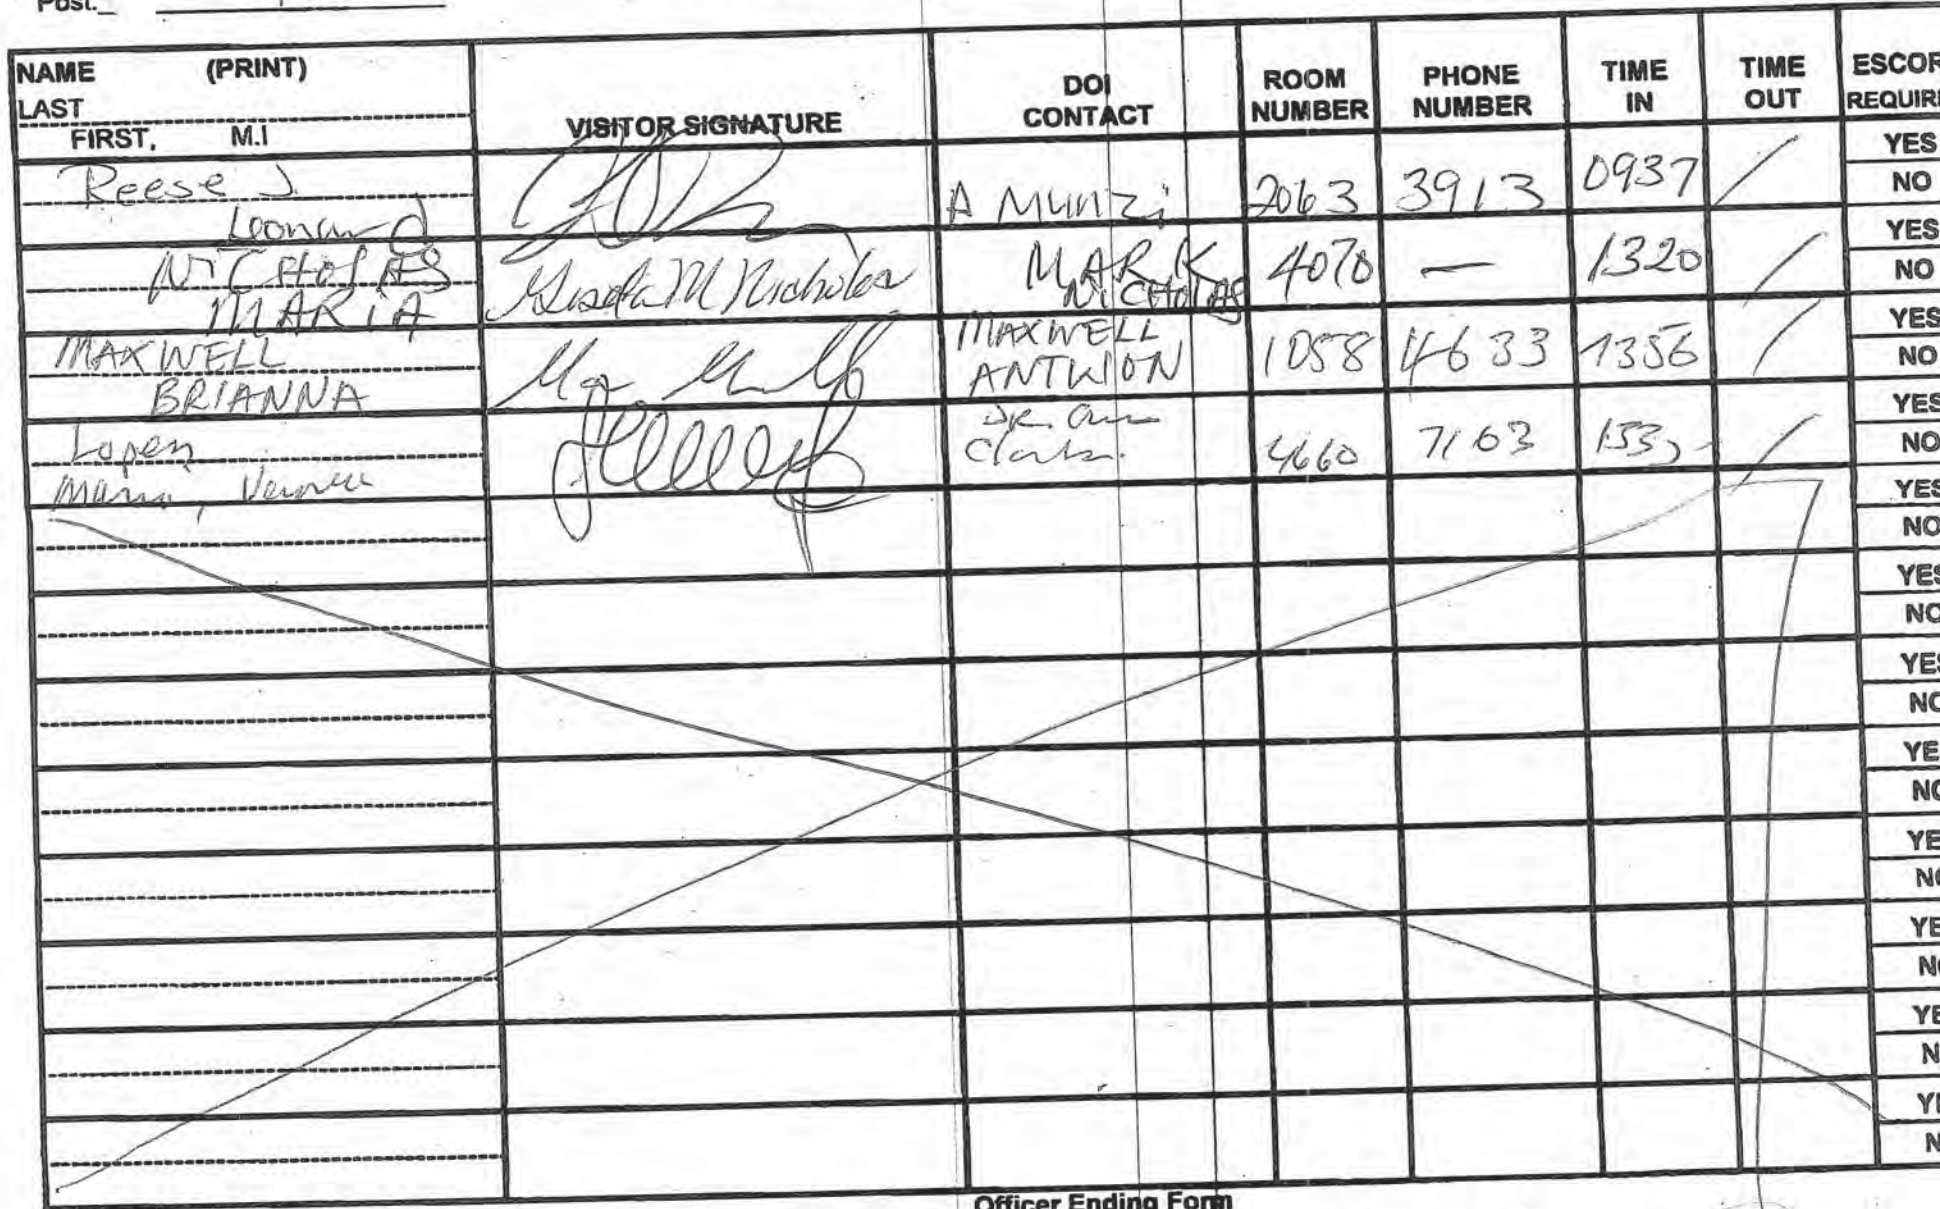 Post:_
NAME (PRINT)
LAST
FIRST, M.I
VISITOR SIGNATURE
DOI
CONTACT
ROOM
NUMBER
PHONE
NUMBER
TIME
IN
TIME
OUT
ESCOR
REQUIRE
Reese J
Leonard
A Munzi
2063
3913
0937
YES
NO
NICHOLAS
MARIA
M Nicholas
MARK
NICHOLAS
4070
—
1320
YES
NO
MAXWELL
BRIANNA
MAXWELL
ANTWION
1058
4633
1356
YES
NO
Lopez
Maria,
Clark
4660
7163
YES
NO
YES
NO
YES
NO
YES
NO
YE
NO
YE
NO
YE
NO
YE
N
YE
N
Officer Ending Form